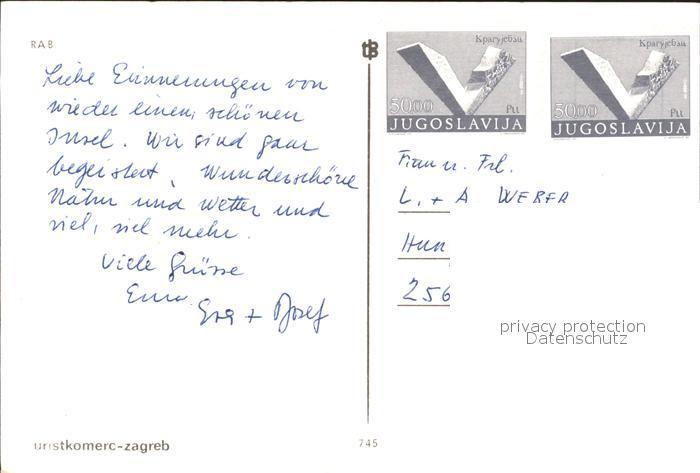 RAB
Liebe Erinnerungen von
wieder einen, schönen
Insel. Wir sind ganz
begeistert, Wunderschöne
Natur und Wetter und
viel, viel mehr.
Viele Grüsse
Eure
Eva + Josef
uristkomerc-zagreb
745
tB
Крагујевац
50.00 Ptt
JUGOSLAVIJA
Крагујевац
50.00 Ptt
JUGOSLAVIJA
Frau u. Frl.
L. + A WEBER
Hun
256
privacy protection
Datenschutz